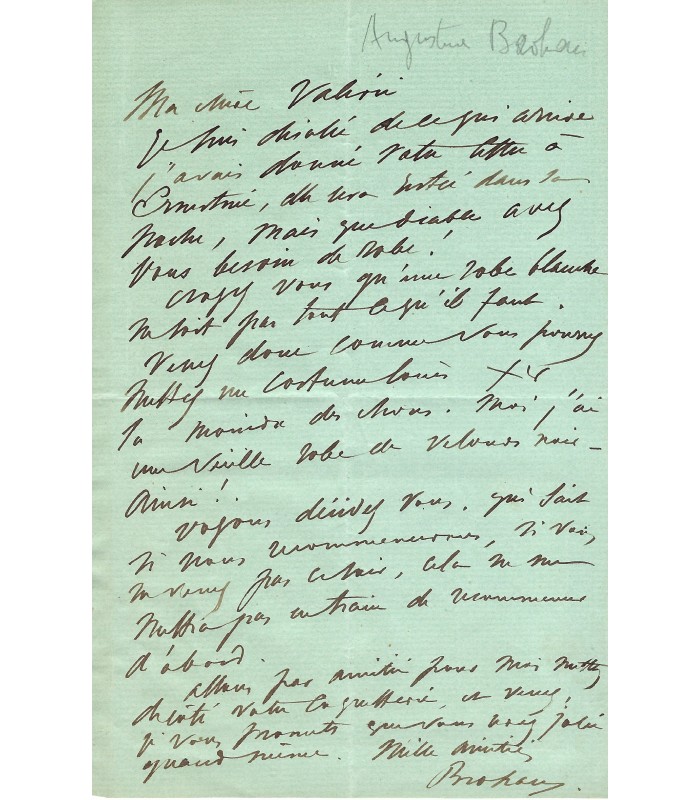 Augustine Brohan
Ma chère Valérie
je suis désolée de ce qui arrive
j'avais donné votre lettre à
Ernestine, elle sera restée dans sa
poche, mais que diable avez
vous besoin de robe!
croyez vous qu'une robe blanche
ne soit pas tout ce qu'il faut.
Venez donc comme vous pourrez
mettez un costume Louis XV
la moindre des choses. Moi j'ai
une vieille robe de velours noir –
Ainsi!.
voyons décidez vous. qui sait
si nous recommencerons, si vous
ne venez pas ce soir, cela ne me
mettra pas en train de recommencer
d'abord.
allons par amitié pour moi mettez
de côté votre coquetterie, et venez,
je vous promets que vous serez jolie
quand même. Mille amitiés
Brohan.